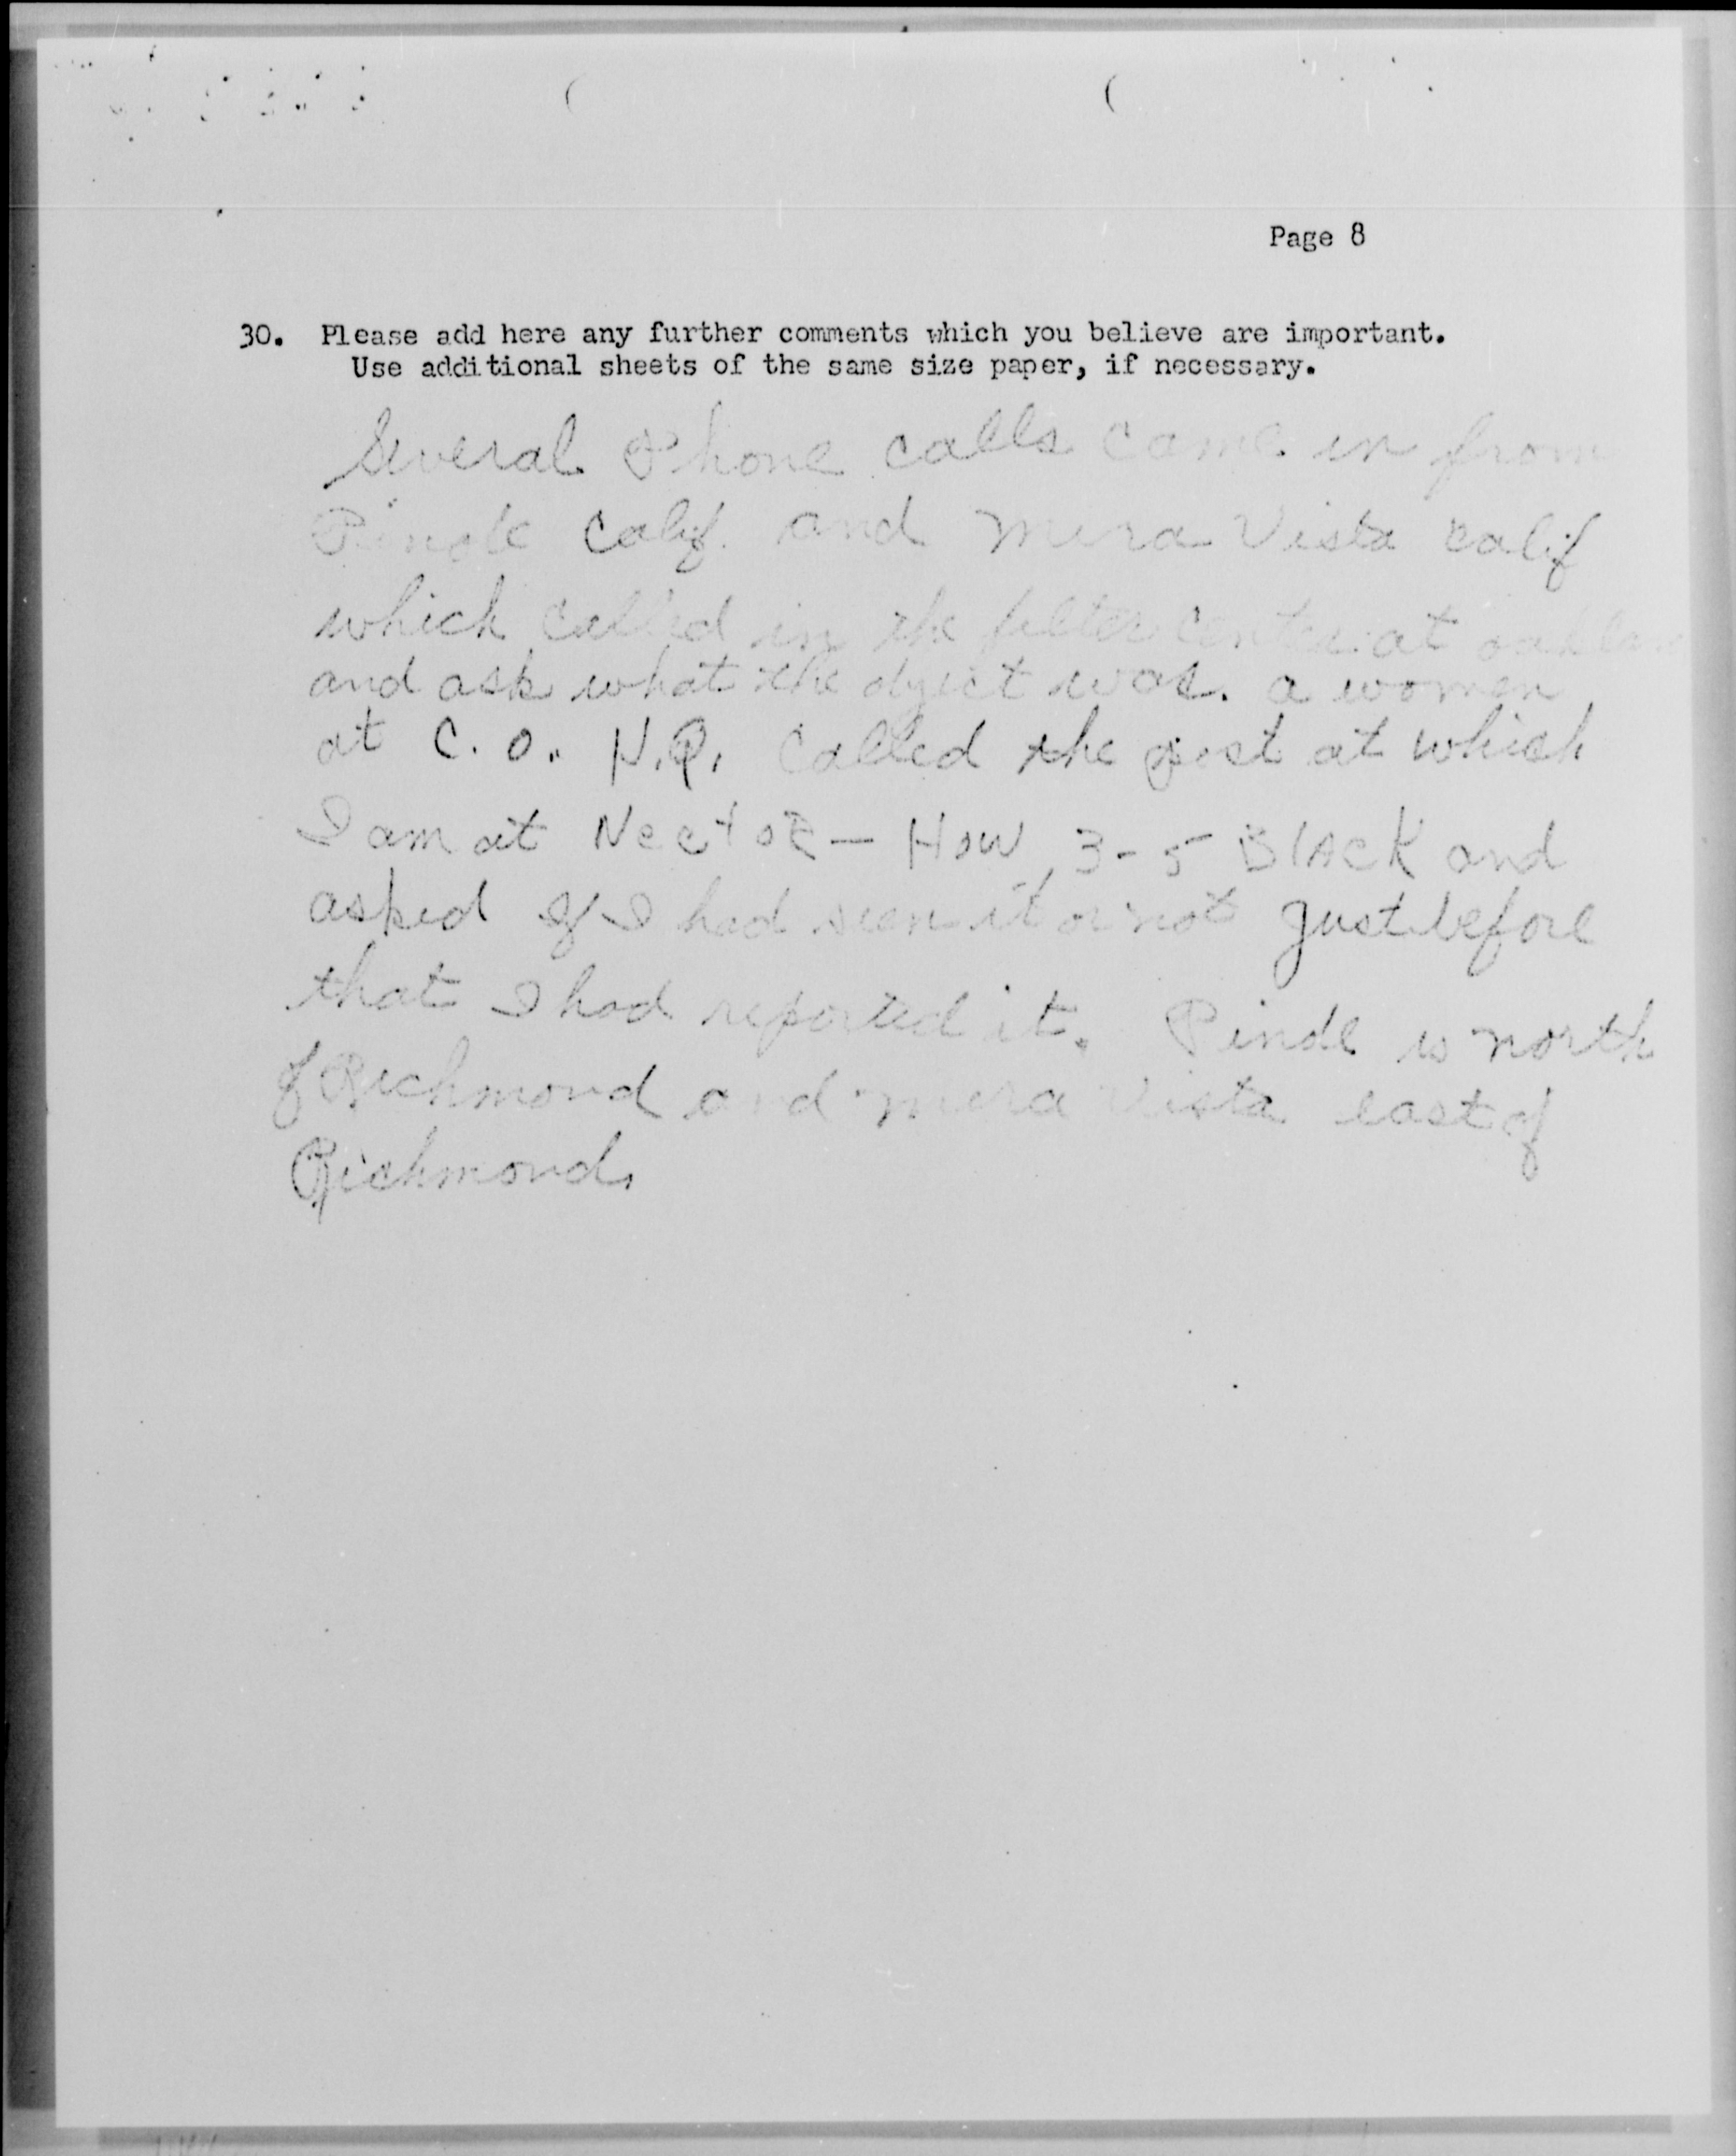 Page 8
30. Please add here any further comments which you believe are important.
Use additional sheets of the same size paper, if necessary.
Several Phone calls came in from
Pinole Calif. and Mira Vista calif
which called in the filter center at oakland
and ask what the object was. a women
at C.O. H.Q. Called the post at which
I am at Nectar - How, 3-5 BlACK and
asked if I had seen it or not just before
that I had reported it. Pinole is north
of Richmond and mira vista east of
Richmond.